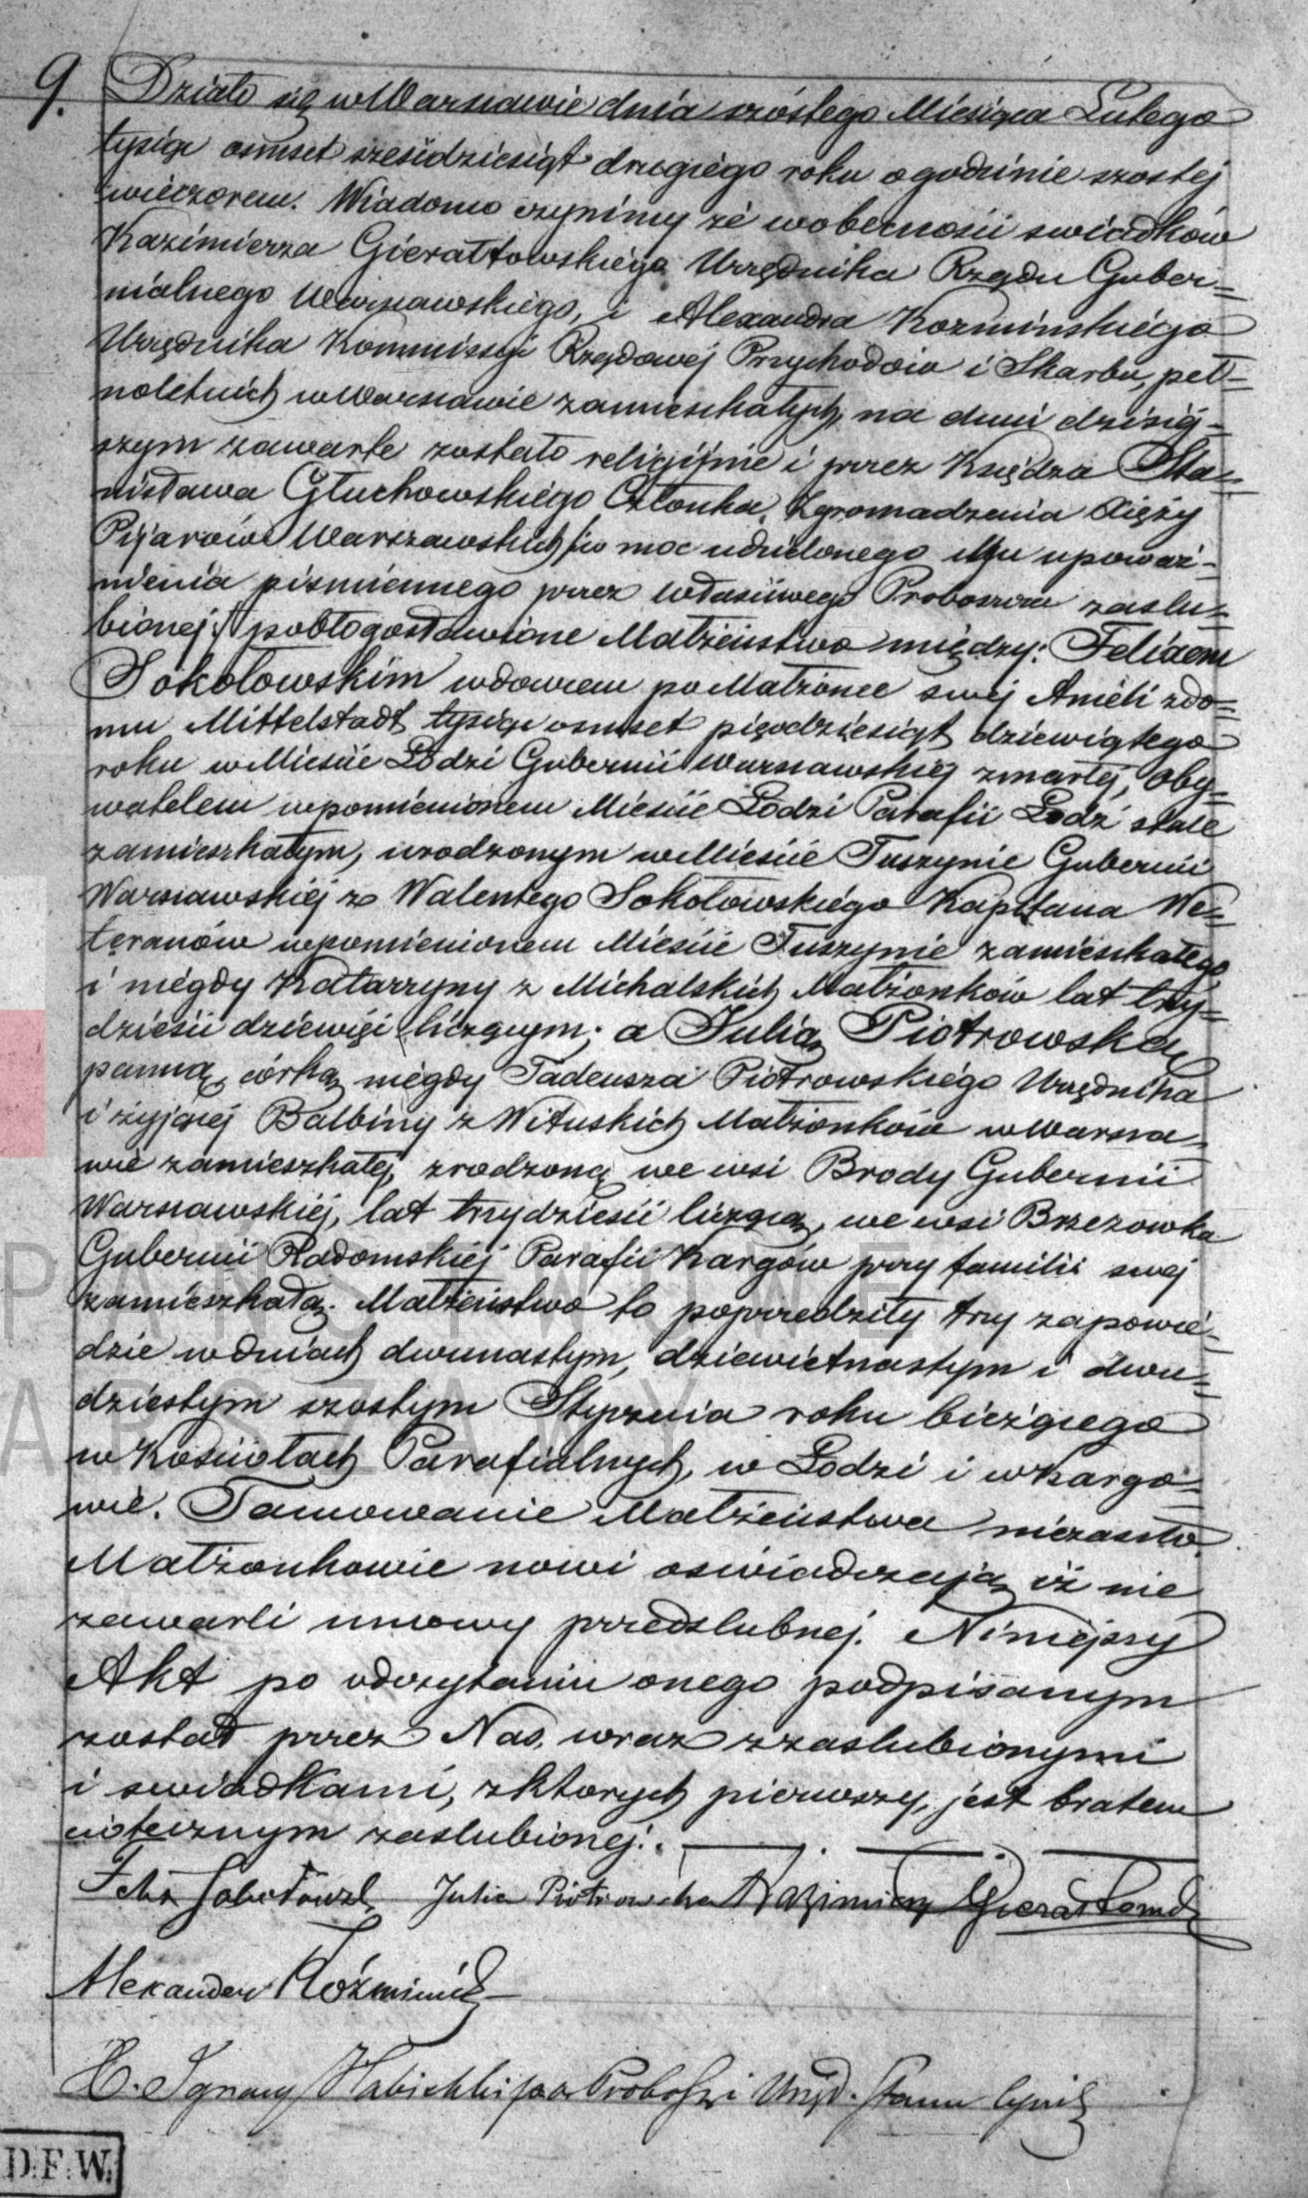 9. Działo się w Warszawie dnia szóstego Miesiąca Lutego
tysiąc osmset sześćdziesiąt drugiego roku o godzinie szostej
wieczorem. Wiadomo czynimy że w obecności swiadków
Kazimierza Gierałtowskiego Urzędnika Rządu Guber=
nialnego Warszawskiego, i Alexandra Kozminskiego
Urzędnika Kommissyi Rządowej Przychodów i Skarbu, peł=
noletnich w Warszawie zamieszkałych, na dniu dzisiej=
szym zawarte zostało religijnie i przez Księdza Sta=
nisława Głuchowskiego Członka Zgromadzenia Xięży
Pijarów Warszawskich /:w moc udzielonego Mu upoważ=
nienia piśmiennego przez właściwego Proboszcza zaslu=
bionej:/ pobłogosławione Małżeństwo między: Felixem
Sokołowskim wdowcem po Małżonce swej Anieli z do=
mu Mittelstadt tysiąc osmset pięcdziesiąt dziewiątego
roku w Mieście Łodzi Gubernii Warszawskiej zmarłej, Oby=
watelem wpomienionem Mieście Łodzi Parafii Łodź stale
zamieszkałym, urodzonym w Mieście Tuszynie Gubernii
Warszawskiej z Walentego Sokołowskiego Kapitana We=
teranów wpomienionem Mieście Tuszynie zamieszkałego
i niegdy Katarzyny z Michalskich Małżonków lat trzy=
dzieści dziewięć liczącym; a Julią Piotrowską
panną, córką niegdy Tadeusza Piotrowskiego Urzędnika
i żyjącej Balbiny z Wituskich Małżonków w Warsza=
wie zamieszkałej, zrodzoną we wsi Brody Gubernii
Warszawskiej, lat trzydzieści liczącą, we wsi Brzezowka
Gubernii Radomskiej Parafii Kargów przy familii swej
zamieszkałą. Małżeństwo to poprzedziły trzy zapowie=
dzie w dniach dwunastym, dziewietnastym i dwu=
dziestym szostym Stycznia roku bieżącego
w Kościołach Parafialnych, w Łodzi i w Kargo=
wie. Tamowanie Małżeństwa niezaszło.
Małżonkowie nowi oświadczają iż nie
zawarli umowy przedslubnej. Niniejszy
Akt po odczytaniu onego podpisanym
został przez Nas, wraz z zaslubionymi
i swiadkami, z ktorych pierwszy, jest bratem
ciotecznym zaslubionej.
Felix Sokołowski Julia Piotrowska Kazimierz Gierałtowski
Alexander Koźmiński
X. Ignacy Proboszcz i Urzęd. Stanu Cywil
PAŃSTWOWE
WARSZAWY
D.F.W.